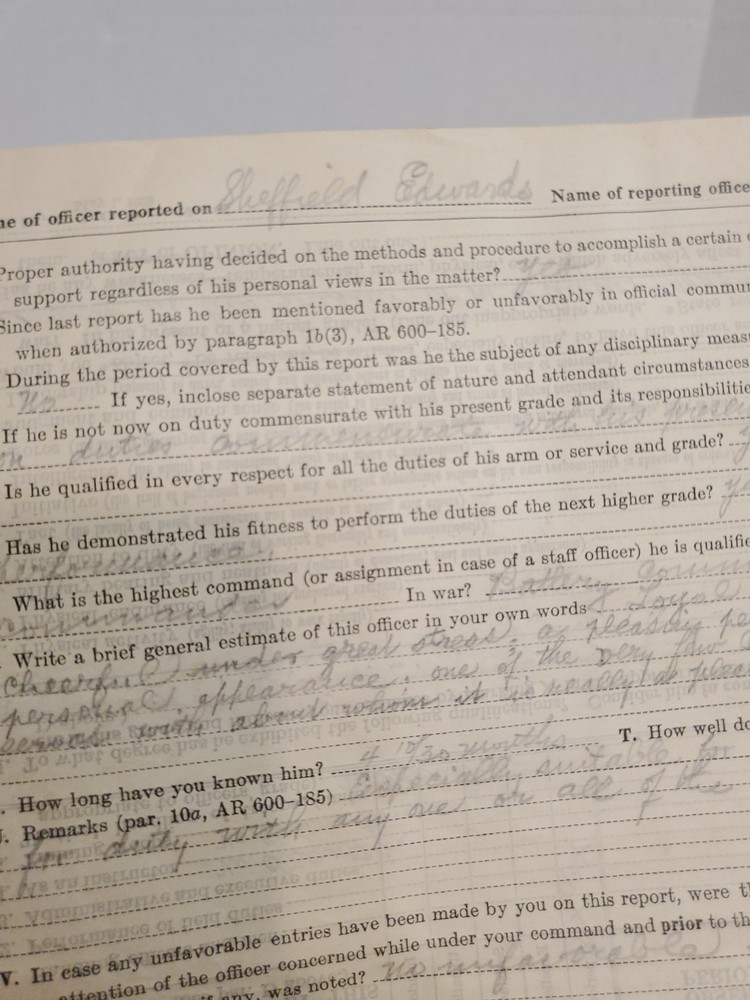 ne of officer reported on Sheffield Edwards Name of reporting office
Proper authority having decided on the methods and procedure to accomplish a certain
support regardless of his personal views in the matter? yes
Since last report has he been mentioned favorably or unfavorably in official commun
when authorized by paragraph 1b(3), AR 600–185.
During the period covered by this report was he the subject of any disciplinary meas
No If yes, inclose separate statement of nature and attendant circumstances
If he is not now on duty commensurate with his present grade and its responsibilitie
on duties commensurate with his presen
Is he qualified in every respect for all the duties of his arm or service and grade?
Has he demonstrated his fitness to perform the duties of the next higher grade? Ye
What is the highest command (or assignment in case of a staff officer) he is qualifie
commander In war? Battery Comm
Write a brief general estimate of this officer in your own words Loyal
Cheerful under great stress, a pleasing pe
personal appearance, one of the very few
persons with about whom it is really a pleas
How long have you known him? 4 10/30 months T. How well do
Remarks (par. 10a, AR 600–185) Especially suitable for
duty with any one or all of the
V. In case any unfavorable entries have been made by you on this report, were th
attention of the officer concerned while under your command and prior to th
if any, was noted? No unfavorable